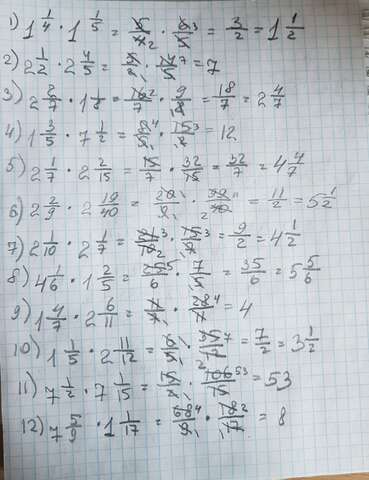 1) 1 1/4 · 1 1/5 = 5/4 2 · 6/5 3 = 3/2 = 1 1/2
2) 2 1/2 · 2 4/5 = 5/2 · 14/5 7 = 7
3) 2 2/7 · 1 1/8 = 16/7 2 · 9/8 = 18/7 = 2 4/7
4) 1 3/5 · 7 1/2 = 8/5 4 · 15/2 3 = 12
5) 2 1/7 · 2 2/15 = 15/7 · 32/15 = 32/7 = 4 4/7
6) 2 2/9 · 2 19/40 = 20/9 · 99/40 11 2 = 11/2 = 5 1/2
7) 2 1/10 · 2 1/7 = 21/10 3 2 · 15/7 3 = 9/2 = 4 1/2
8) 4 1/6 · 1 2/5 = 25/6 5 · 7/5 = 35/6 = 5 5/6
9) 1 4/7 · 2 6/11 = 11/7 · 28/11 4 = 4
10) 1 1/5 · 2 11/12 = 6/5 · 35/12 7 2 = 7/2 = 3 1/2
11) 7 1/2 · 7 1/15 = 15/2 · 106/15 53 = 53
12) 7 5/9 · 1 1/17 = 68/9 4 · 18/17 2 = 8